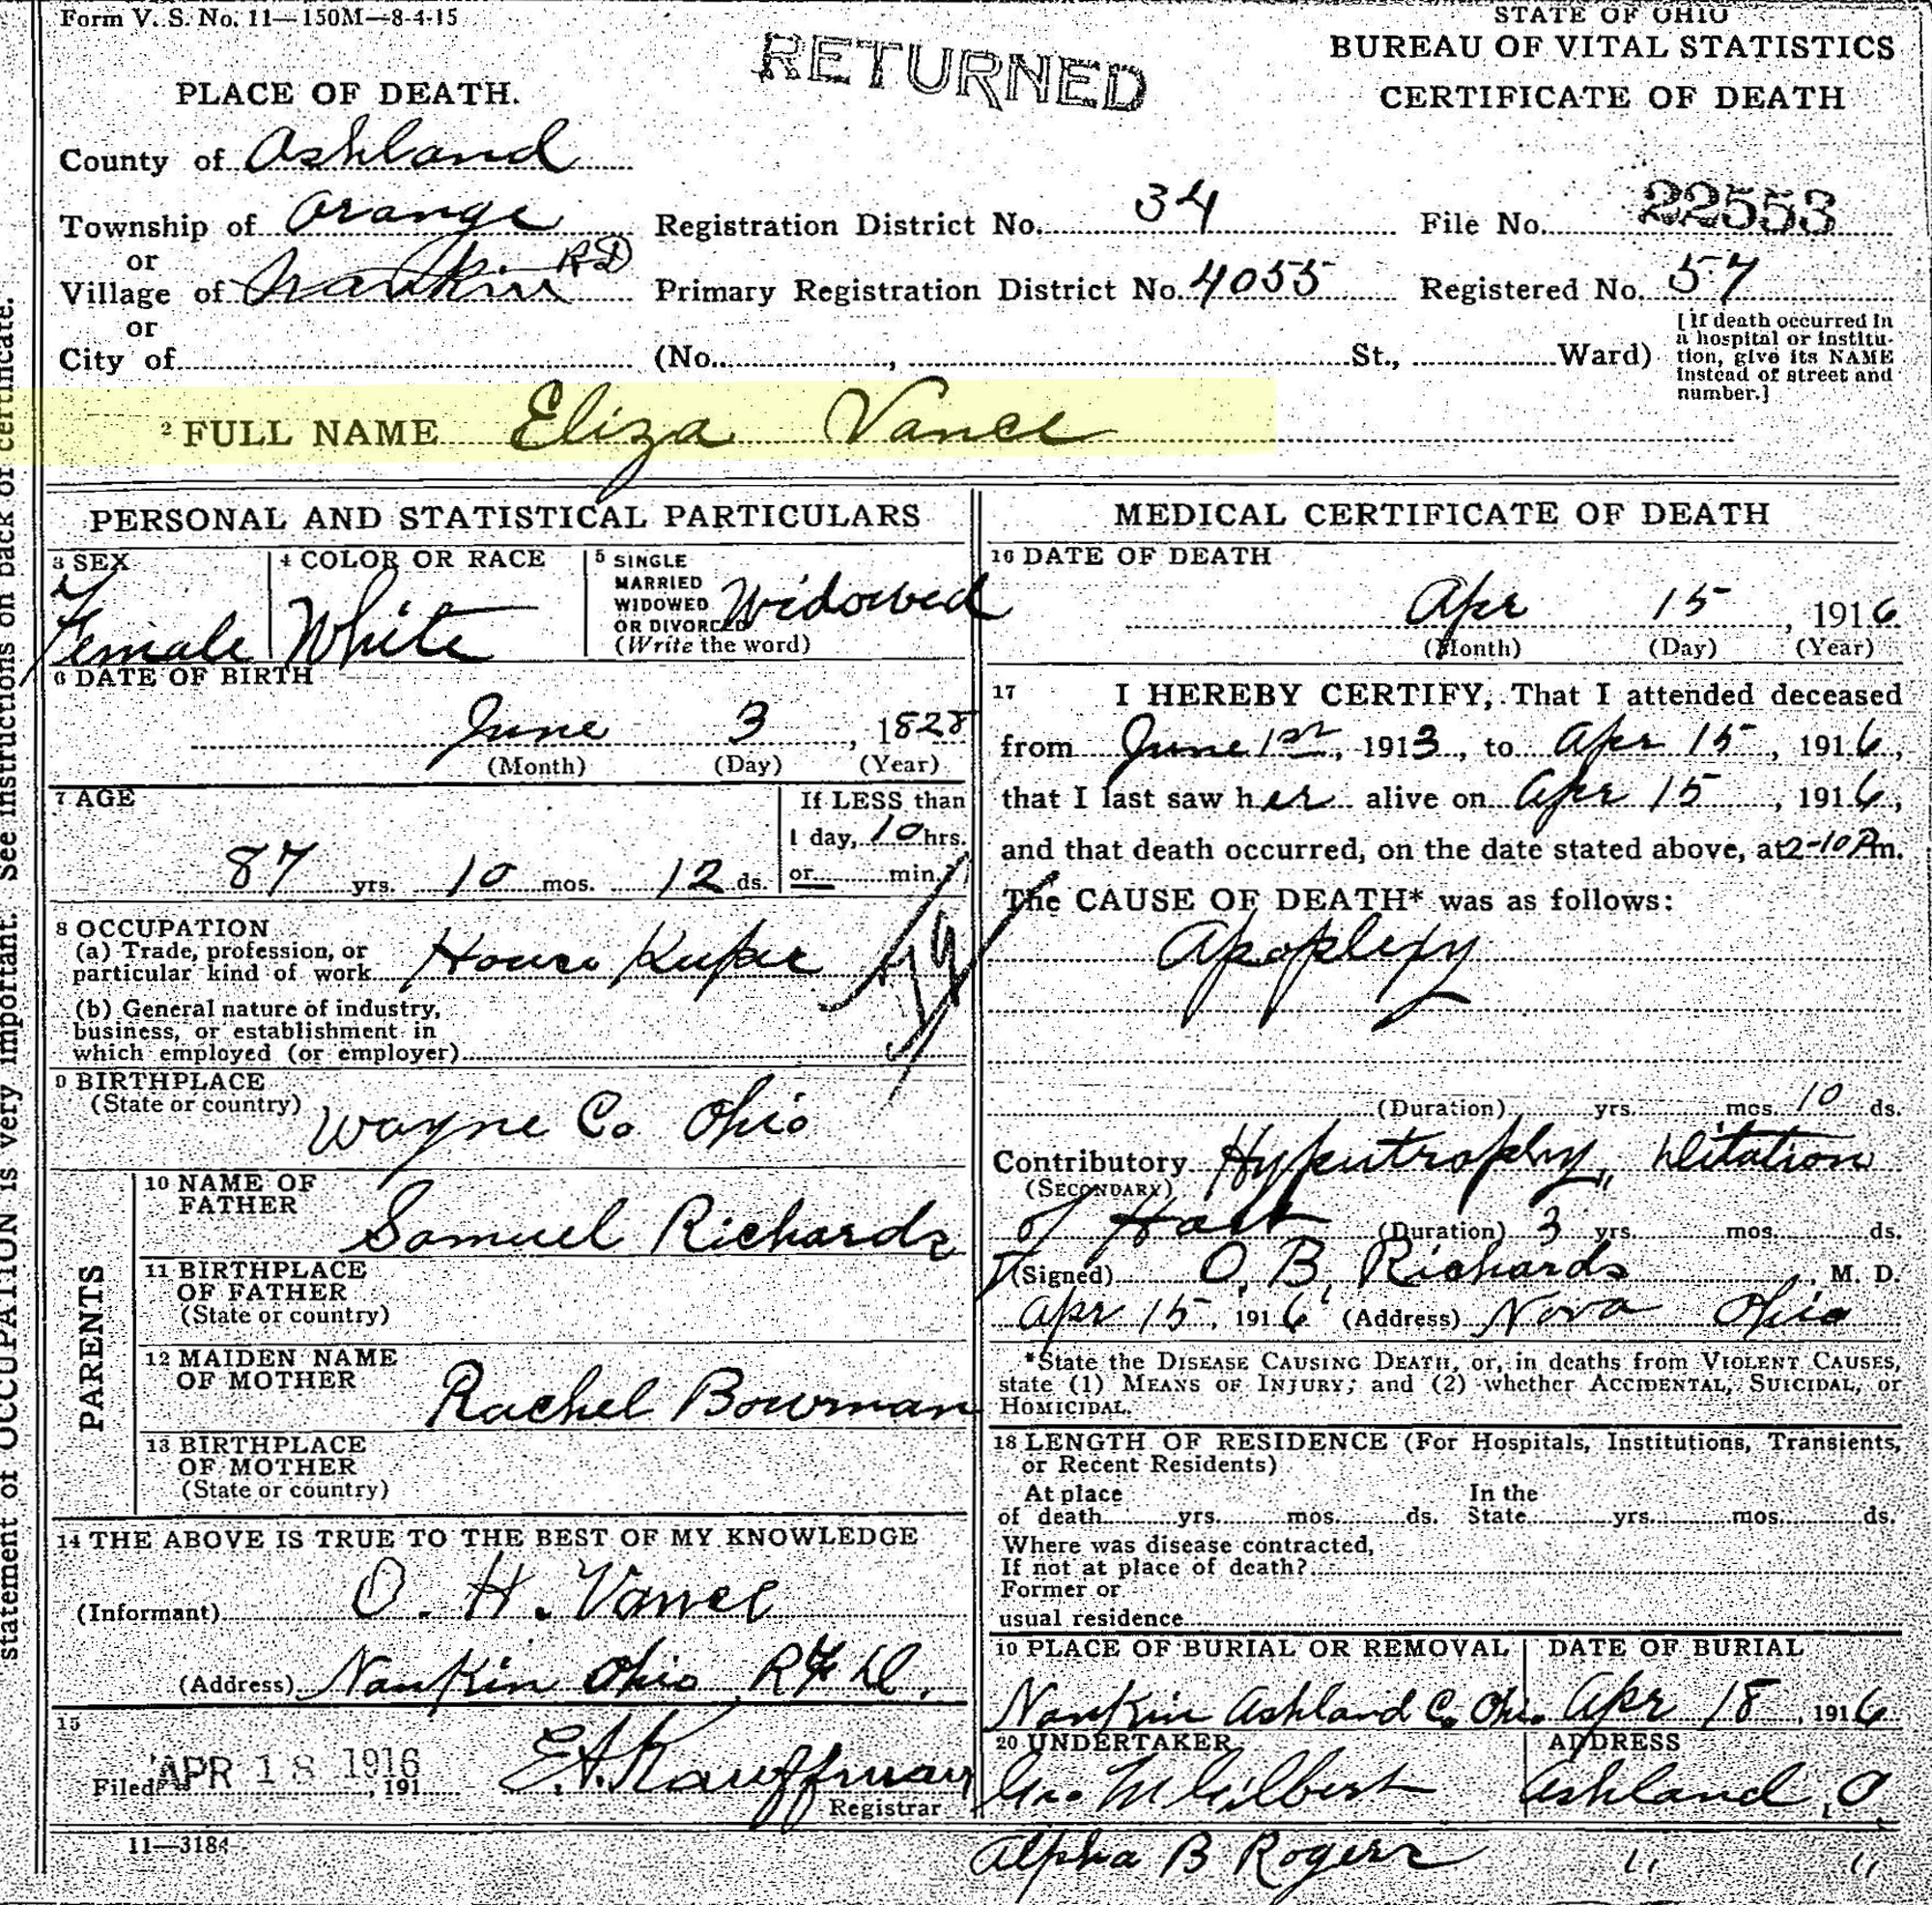 Form V. S. No. 11—150M—8-4-15
STATE OF OHIO
BUREAU OF VITAL STATISTICS
CERTIFICATE OF DEATH
RETURNED
PLACE OF DEATH.
County of Ashland
Township of Orange Registration District No. 34 File No. 22553
or
Village of Nankin RD Primary Registration District No. 4055 Registered No. 57
or
City of (No. , St., Ward)
[If death occurred in
a hospital or institu-
tion, give its NAME
instead of street and
number.]
2 FULL NAME Eliza Vance
statement of OCCUPATION is very important. See instructions on back of certificate.
PERSONAL AND STATISTICAL PARTICULARS
3 SEX
Female
4 COLOR OR RACE
White
5 SINGLE
MARRIED
WIDOWED
OR DIVORCED
(Write the word)
Widowed
6 DATE OF BIRTH
June 3, 1828
(Month) (Day) (Year)
7 AGE
87 yrs. 10 mos. 12 ds.
If LESS than
1 day, 10 hrs.
or min.?
8 OCCUPATION
(a) Trade, profession, or
particular kind of work House Keeper
(b) General nature of industry,
business, or establishment in
which employed (or employer)
9 BIRTHPLACE
(State or country)
Wayne Co Ohio
PARENTS
10 NAME OF
FATHER
Samuel Richards
11 BIRTHPLACE
OF FATHER
(State or country)
12 MAIDEN NAME
OF MOTHER
Rachel Bowman
13 BIRTHPLACE
OF MOTHER
(State or country)
14 THE ABOVE IS TRUE TO THE BEST OF MY KNOWLEDGE
(Informant) O. H. Vance
(Address) Nankin Ohio RFD.
15
Filed APR 18 1916, 191
E.A. Kauffman
Registrar
11—3184
MEDICAL CERTIFICATE OF DEATH
16 DATE OF DEATH
Apr 15, 1916
(Month) (Day) (Year)
17 I HEREBY CERTIFY, That I attended deceased
from June 1st, 1913, to Apr 15, 1916,
that I last saw her alive on Apr 15, 1916,
and that death occurred, on the date stated above, at 2-10 Pm.
The CAUSE OF DEATH* was as follows:
Apoplexy
(Duration) yrs. mos. 10 ds.
Contributory Hypertrophy, Dilitation
(SECONDARY)
of Heart (Duration) 3 yrs. mos. ds.
(Signed) O. B. Richards, M. D.
Apr 15, 1916 (Address) Nova Ohio
*State the DISEASE CAUSING DEATH, or, in deaths from VIOLENT CAUSES,
state (1) MEANS OF INJURY; and (2) whether ACCIDENTAL, SUICIDAL, or
HOMICIDAL.
18 LENGTH OF RESIDENCE (For Hospitals, Institutions, Transients,
or Recent Residents)
At place
of death yrs. mos. ds.
In the
State yrs. mos. ds.
Where was disease contracted,
If not at place of death?
Former or
usual residence
19 PLACE OF BURIAL OR REMOVAL
Nankin Ashland Co. Oh.
DATE OF BURIAL
Apr 18, 1916
20 UNDERTAKER
Geo. M Gilbert
ADDRESS
Ashland, O,
Alpha B Rogers " "